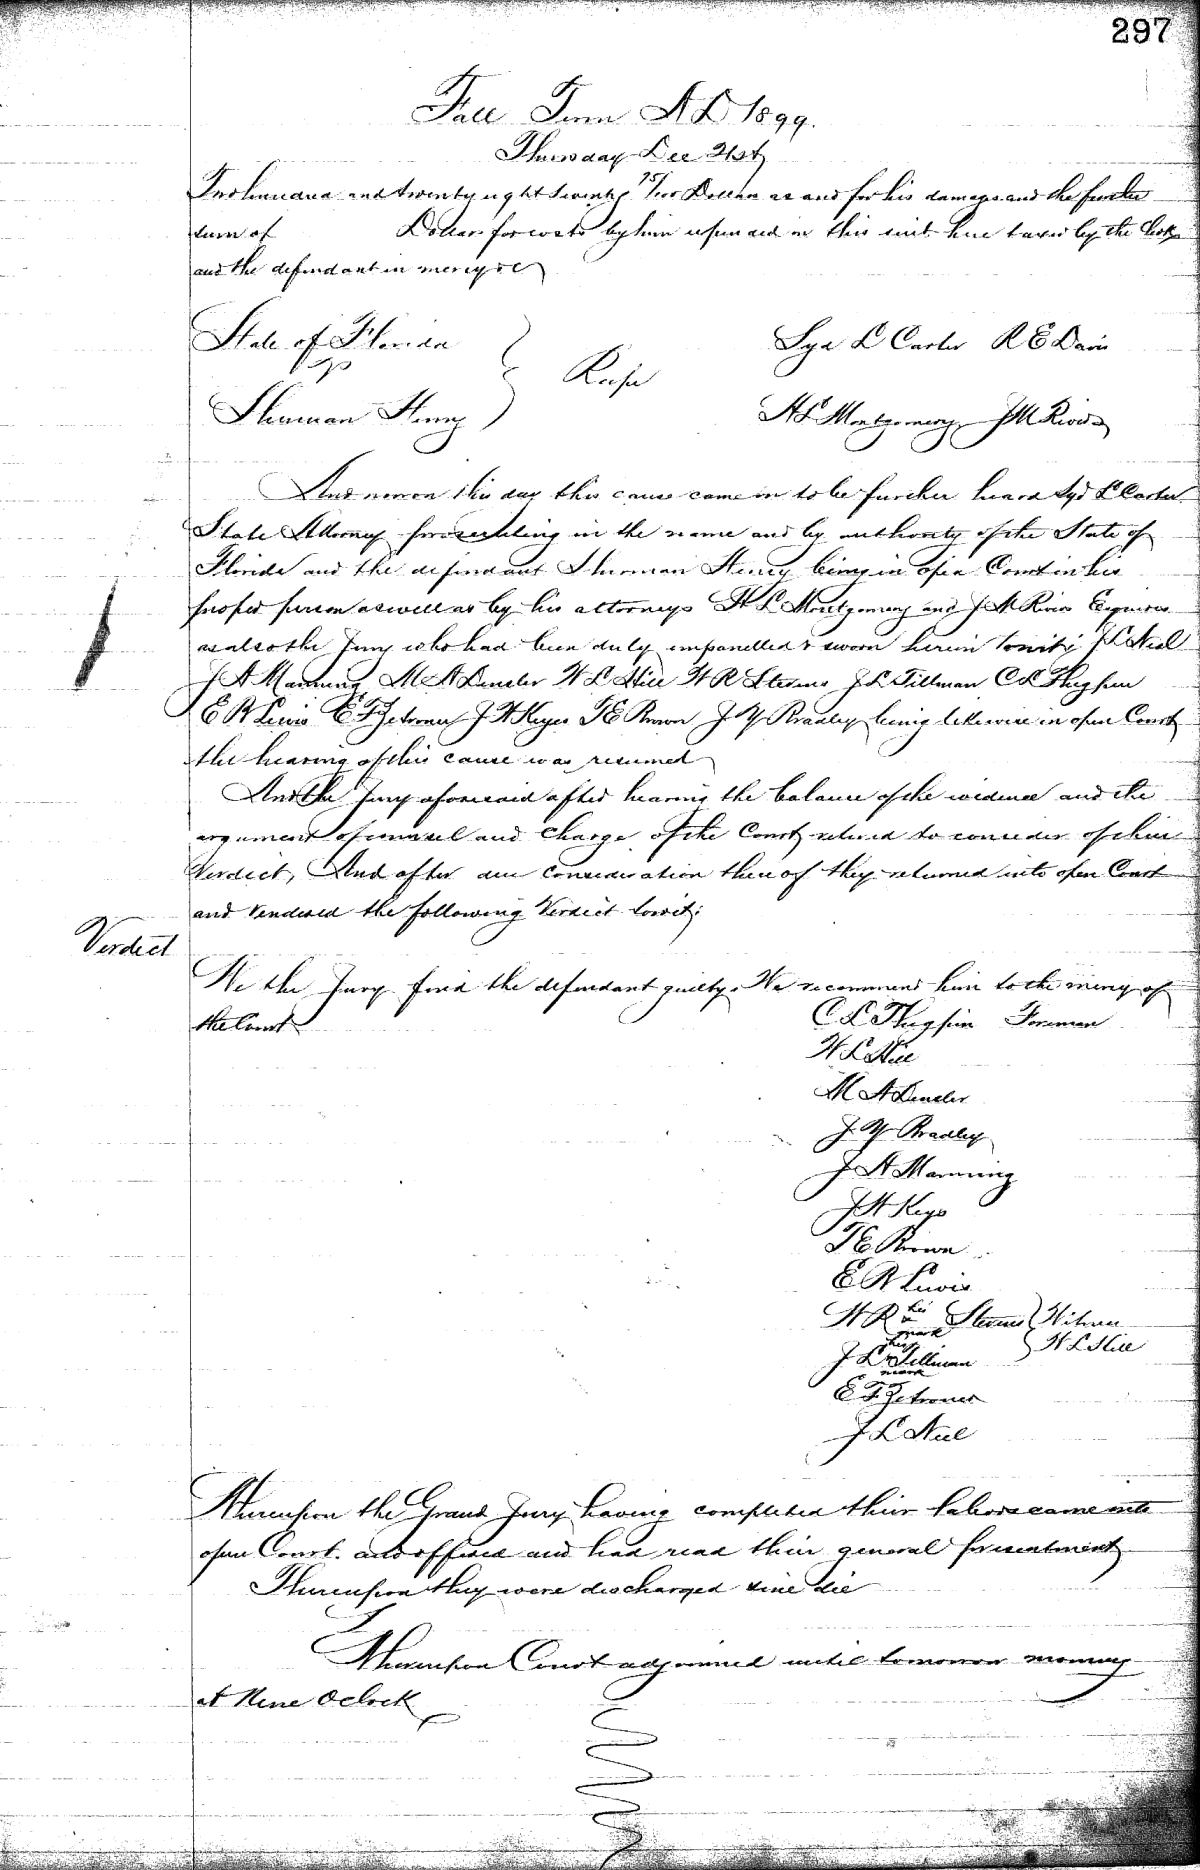 297
Fall Term A.D. 1899.
Thursday Dec 21st
Two hundred and twenty eight 75/100 Dollars as and for his damages and the further
sum of Dollars for costs by him expended in this suit here taxed by the Clerk
and the defendant in mercy &c
State of Florida
vs
Thurman Henry
Rape
Syd L Carter R E Davis
H L Montgomery J M Rivers
And now on this day this cause came in to be further heard Syd L Carter
State Attorney prosecuting in the name and by authority of the State of
Florida and the defendant Thurman Henry being in open Court in his
proper person as well as by his attorneys H L Montgomery and J M Rivers Esquires
as also the Jury who had been duly empanelled & sworn herein towit; J L Neel
J A Manning M A Dansler W L Hill W R Stevens J L Tillman C L Thigpin
E R Lewis E F Zetrouer J H Keys T E Brown J Y Bradley being likewise in open Court
the hearing of this cause was resumed
And the Jury aforesaid after hearing the balance of the evidence and the
argument of counsel and charge of the Court retired to consider of their
Verdict, And after due consideration thereof they returned into open Court
and rendered the following Verdict towit;
Verdict
We the Jury find the defendant guilty. We recommend him to the mercy of
the Court
C L Thigpin Foreman
W L Hill
M A Dansler
J Y Bradley
J A Manning
J H Keys
T E Brown
E R Lewis
W R his x mark Stevens Witness
J L his x mark Tillman W L Hill
E F Zetrouer
J L Neel
Whereupon the Grand Jury having completed their labors came into
open Court. and offered and had read their general presentment
Thereupon they were discharged sine die
Whereupon Court adjourned until tomorrow morning
at Nine Oclock